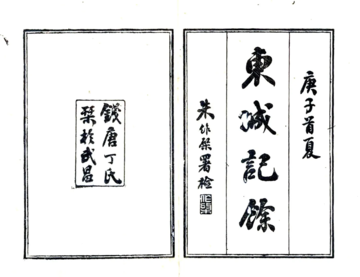 庚子首夏
東城記餘
朱署檢
錢唐丁氏
栞於武昌